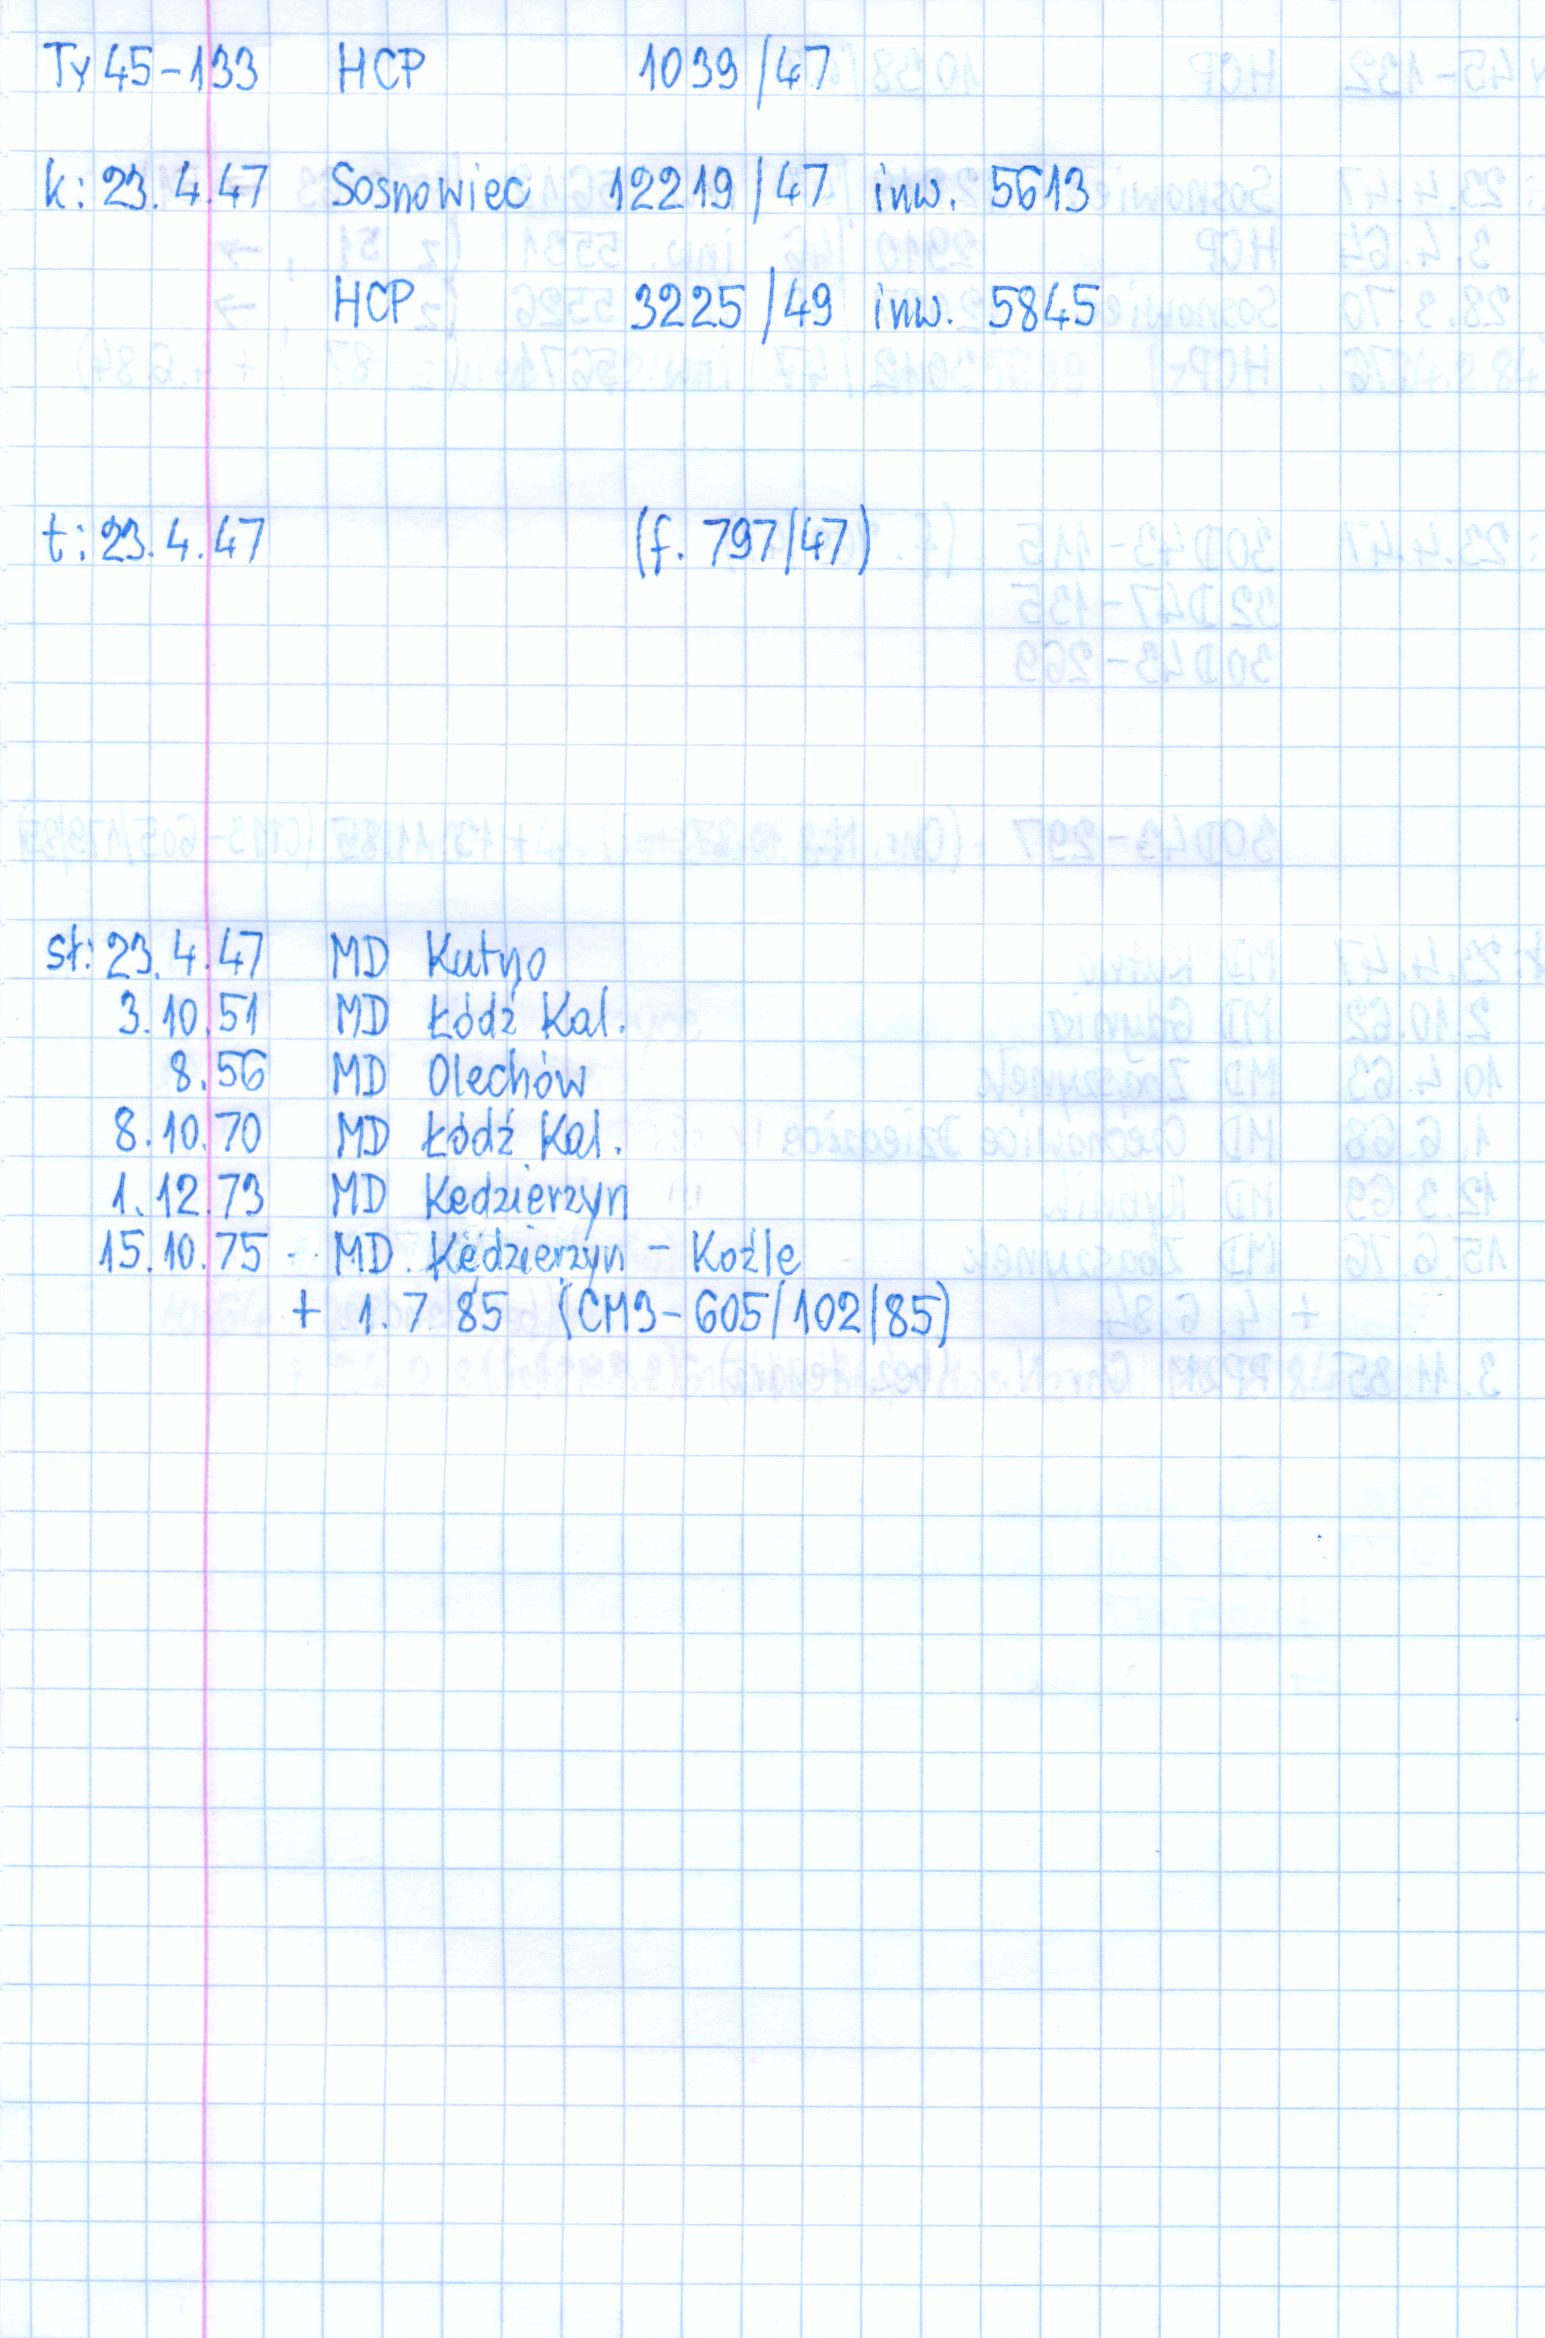 Ty 45-133 HCP 1039/47
k: 23.4.47 Sosnowiec 12219/47 inw. 5613
HCP 3225/49 inw. 5845
t: 23.4.47 (f. 797/47)
st: 23.4.47 MD Kutno
3.10.51 MD Łódź Kal.
8.56 MD Olechów
8.10.70 MD Łódź Kal.
1.12.73 MD Kędzierzyn
15.10.75 MD Kędzierzyn - Koźle
+ 1.7.85 (CM3-605/102/85)